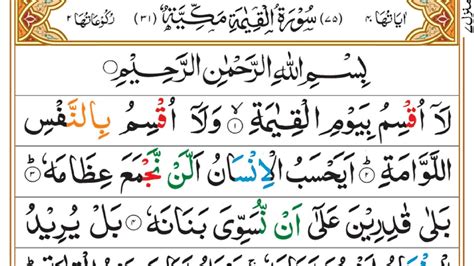 اٰيَاتُهَا ٤٠ (٧٥) سُوْرَةُ الْقِيٰمَةِ مَكِّيَّةٌ (٣١) رُكُوْعَاتُهَا ٢
بِسْمِ اللّٰهِ الرَّحْمٰنِ الرَّحِيْمِ
لَاۤ اُقْسِمُ بِيَوْمِ الْقِيٰمَةِ ۙ‏﴿۱﴾ وَلَاۤ اُقْسِمُ بِالنَّفْسِ
اللَّوَّامَةِ ؕ‏﴿۲﴾ اَيَحْسَبُ الْاِنْسَانُ اَلَّنْ نَّجْمَعَ عِظَامَهٗ ؕ‏﴿۳﴾
بَلٰى قٰدِرِيْنَ عَلٰٓى اَنْ نُّسَوِّىَ بَنَانَهٗ ‏﴿۴﴾ بَلْ يُرِيْدُ